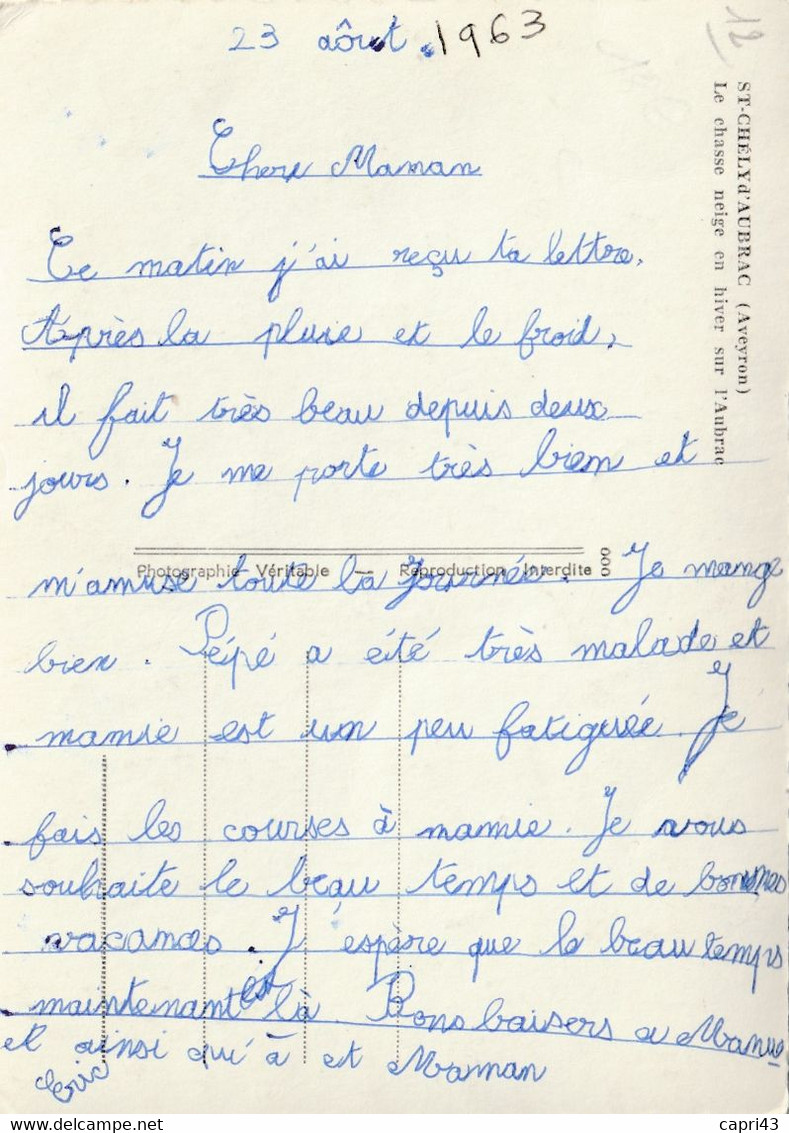 23 aôut . 1963
12
ST-CHÉLY d'AUBRAC (Aveyron)
Le chasse neige en hiver sur l'Aubrac
Chere Maman
Ce matin j'ai reçu ta lettre.
Après la pluie et le froid,
il fait très beau depuis deux
jours. Je me porte très bien et
Photographie Véritable — Reproduction Interdite
000
m'amuse toute la journée. Je mange
bien. Pépé a été très malade et
mamie est un peu fatiguée. Je
fais les courses à mamie. Je vous
souhaite le beau temps et de bonnes
vacances. J'éspère que le beau temps
maintenant est là. Bons baisers a Manu
et ainsi qu'à et Maman
Eric
capri43